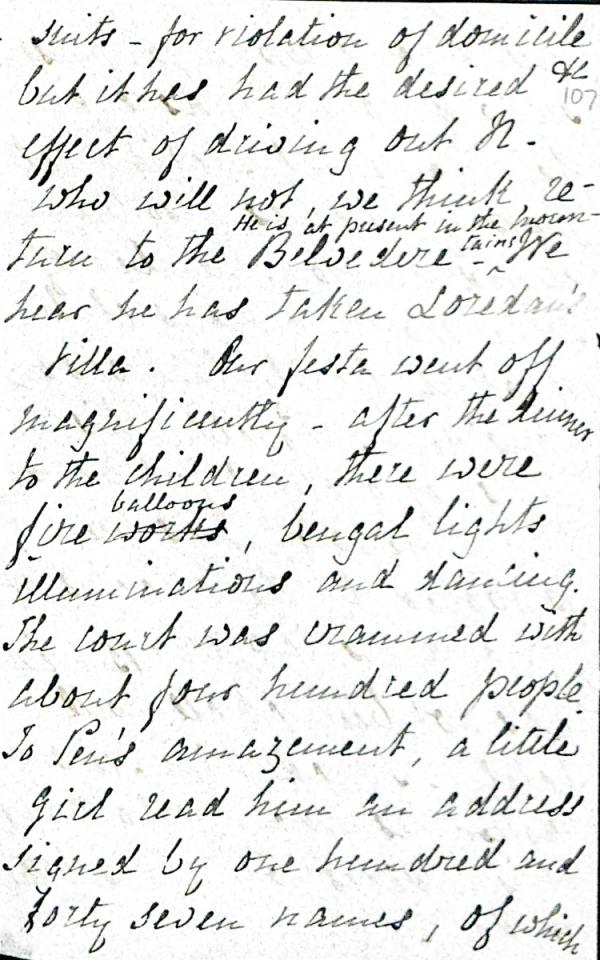 suits - for violation of domicile
but it has had the desired &c
107
effect of driving out N.
who will not, we think, re-
He is at present in the moun-
tains
turn to the Belvedere - We
hear he has taken Loredan's
villa. Our festa went off
magnificently - after the dinner
to the children, there were
balloons
fire works, bengal lights
illuminations and dancing.
The court was crammed with
about four hundred people.
To Pen's amazement, a little
girl read him an address
signed by one hundred and
forty seven names, of which